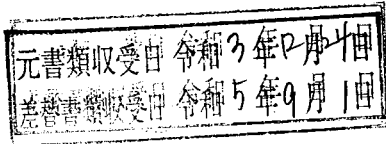 元書類収受日 令和3年12月24日
差替書類収受日 令和5年9月1日